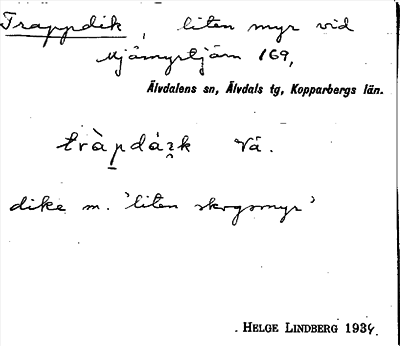 Trappdik, liten myr vid
Mjåmyrtjärn 169,
Älvdalens sn, Älvdals tg, Kopparbergs län.
Vå.
dike m. 'liten skogsmyr'
HELGE LINDBERG 1934.